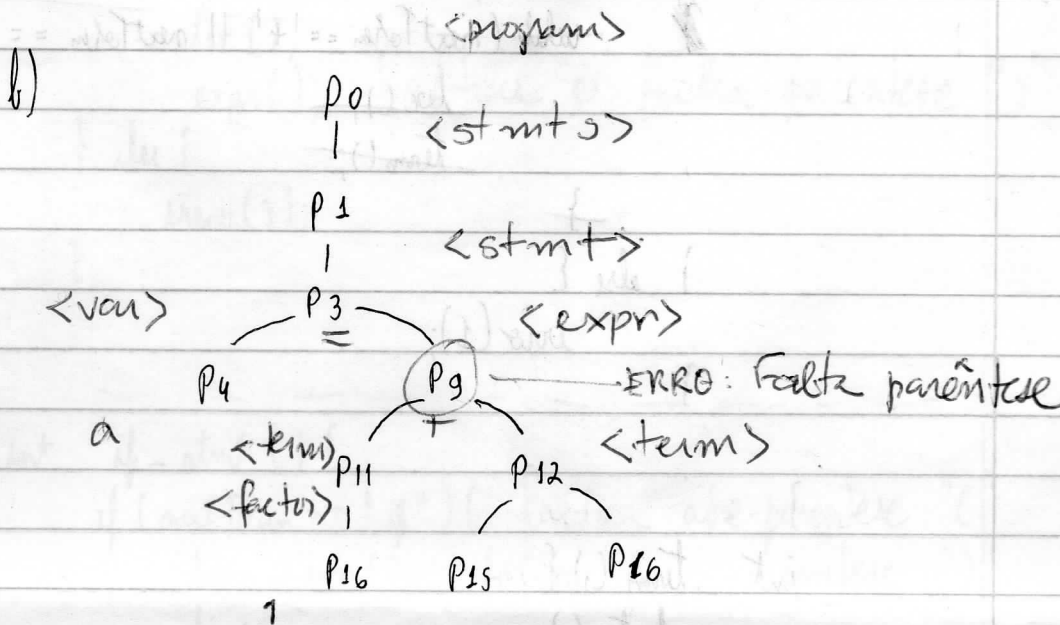 <program>
b)
P0
<stmts>
P1
<stmt>
<var> P3 <expr>
=
P4 P9 ERRO: Falta parêntese
+
a <term> P11 P12 <term>
<factor>
P16 P15 P16
1